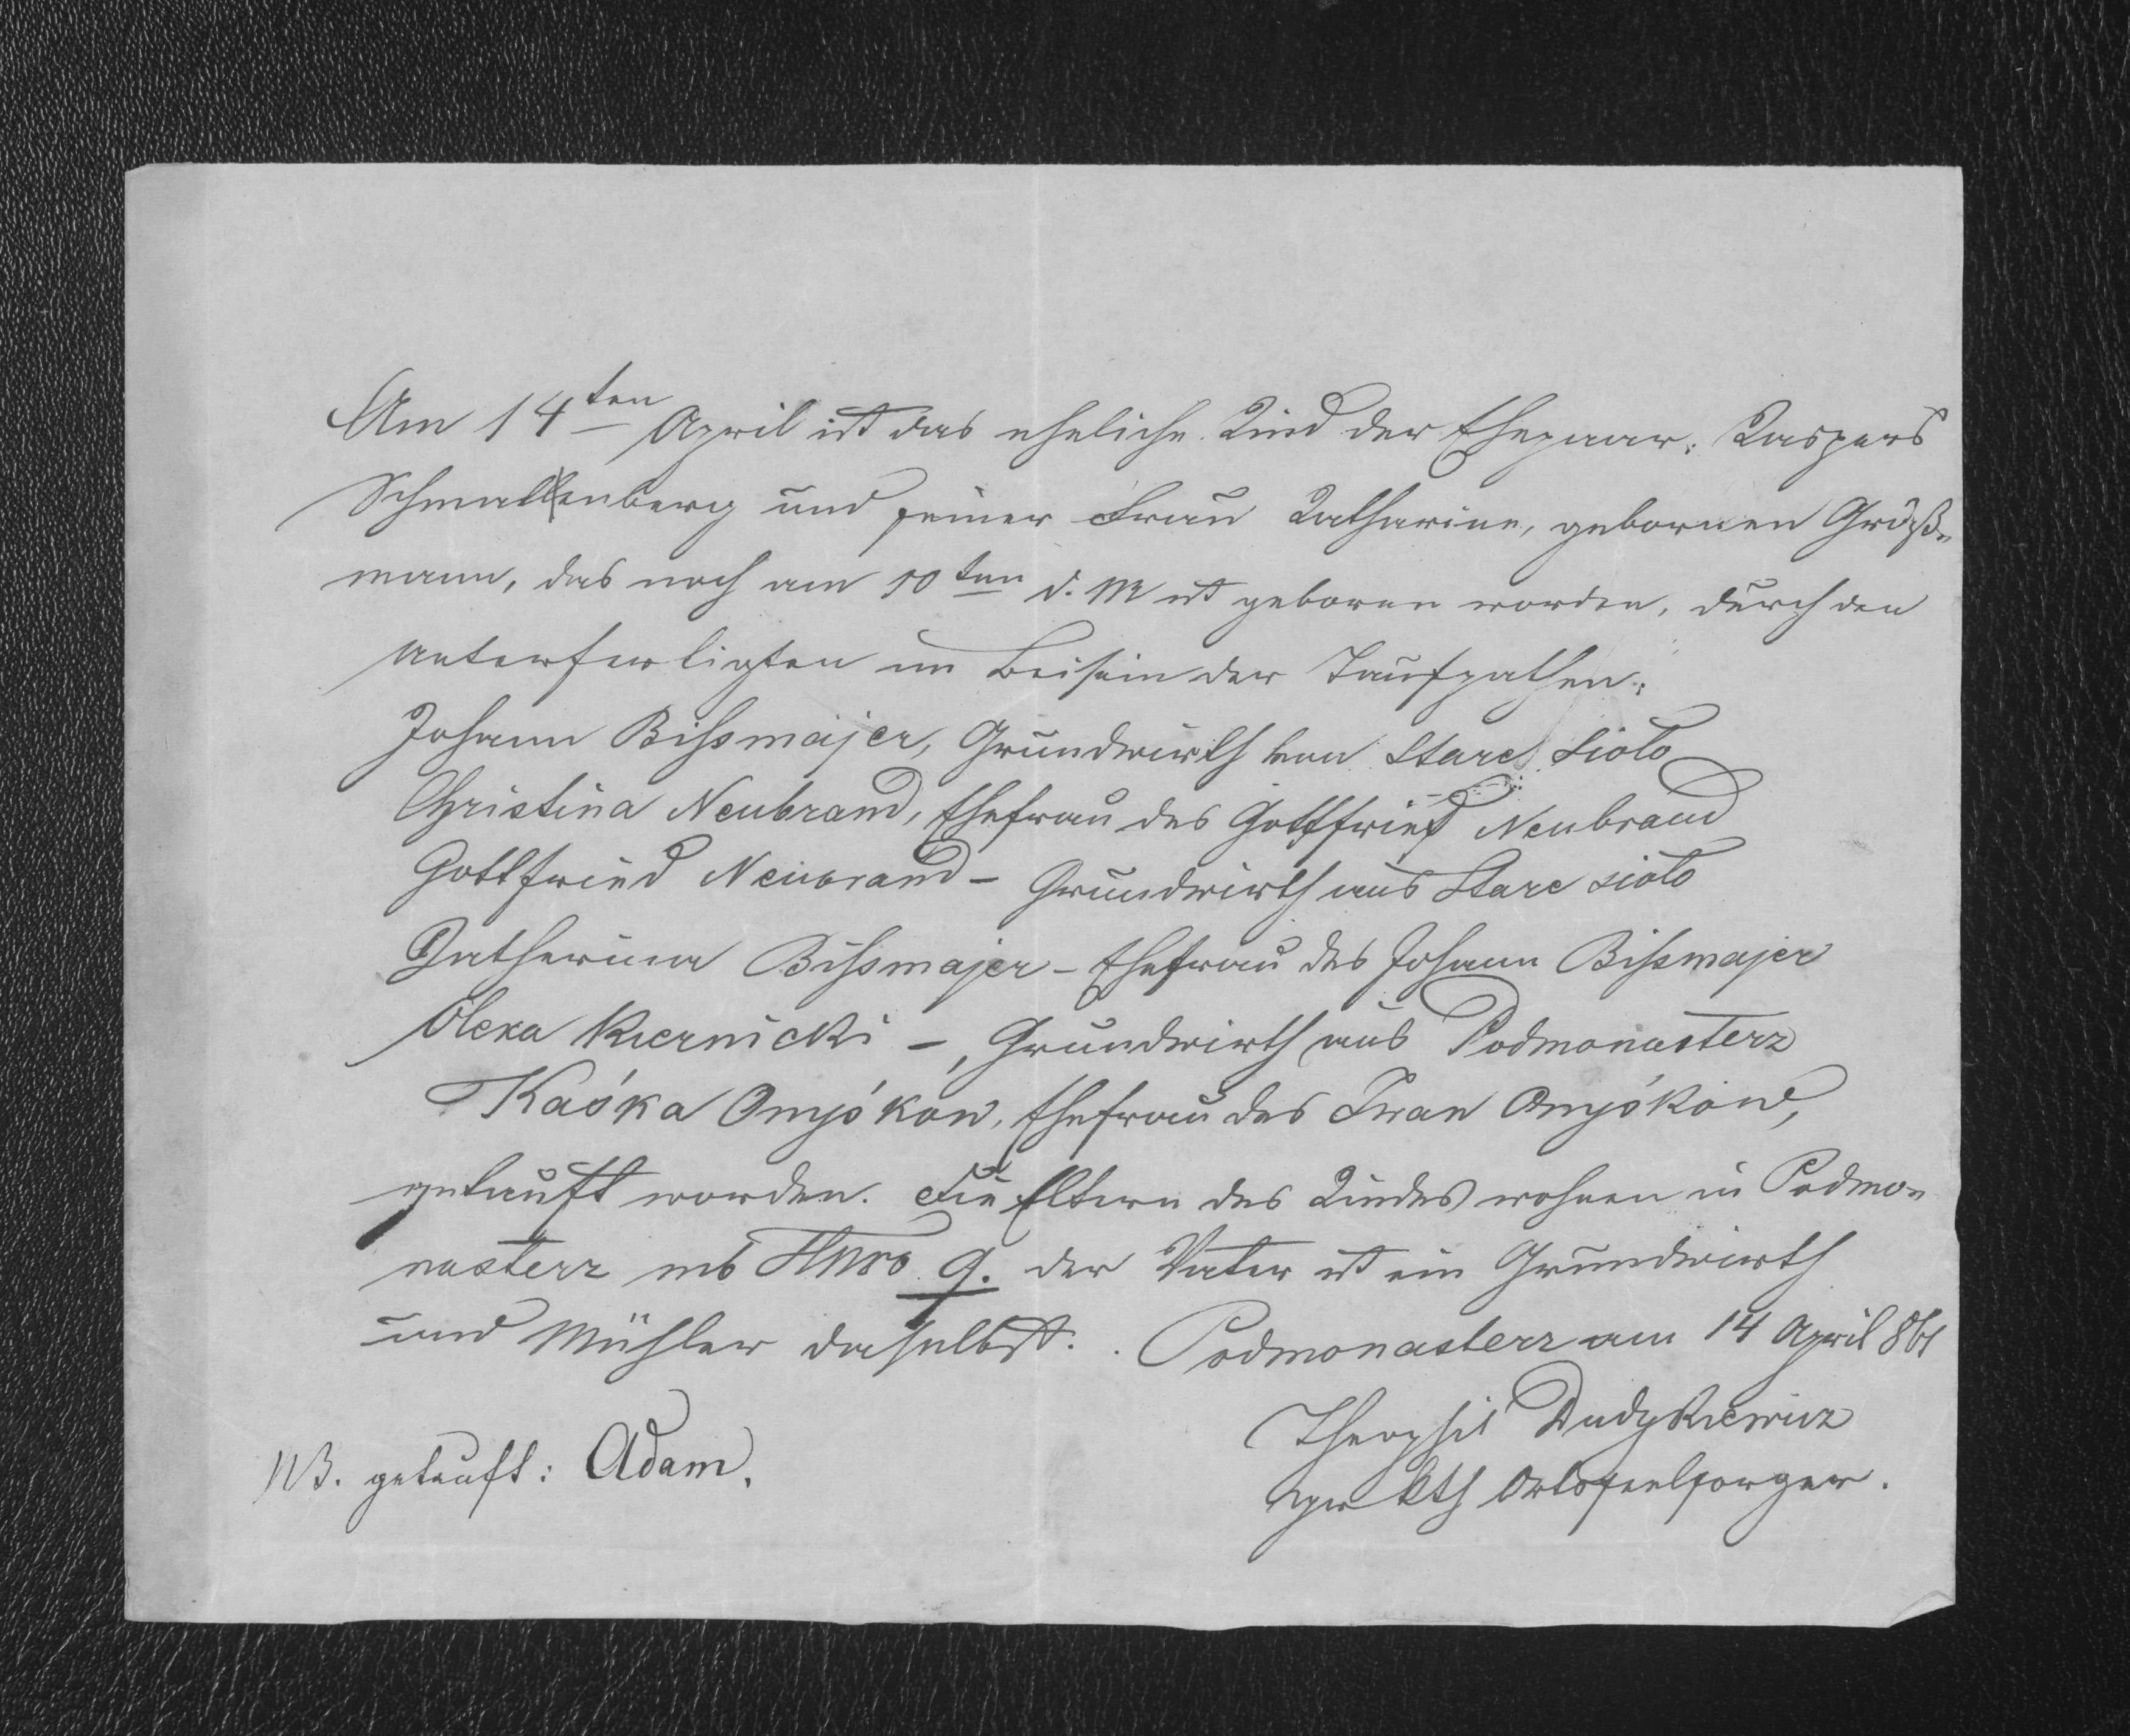 Am 14ten April ist das eheliche Kind der Ehepaar: Kaspers
Schmallenberg und seiner Frau Katharine, gebornen Größ-
mann, das noch am 10ten d. M ist geboren worden, durch den
Unterfertigten im Beisein der Taufpathen:
Johann Bissmajer, Grundwirth von Stare Sioło
Christina Neubrand, Ehefrau des Gottfried Neubrand
Gottfried Neubrand – Grundwirth aus Stare sioło
Katherina Bissmajer – Ehefrau des Johann Bissmajer
Olexa Kiernicki –, Grundwirth aus Podmonasterz
Kaśka Onyśkow, Ehefrau des Iwan Onyśkow,
getauft worden. Die Eltern des Kindes wohnen in Podmo-
nasterz sub HNro 9. der Vater ist ein Grundwirth
und Mühler daselbst. Podmonasterz am 14 April 861
Theophil Dudykiewicz
gr kth Ortsseelsorger.
NB. getauft: Adam.